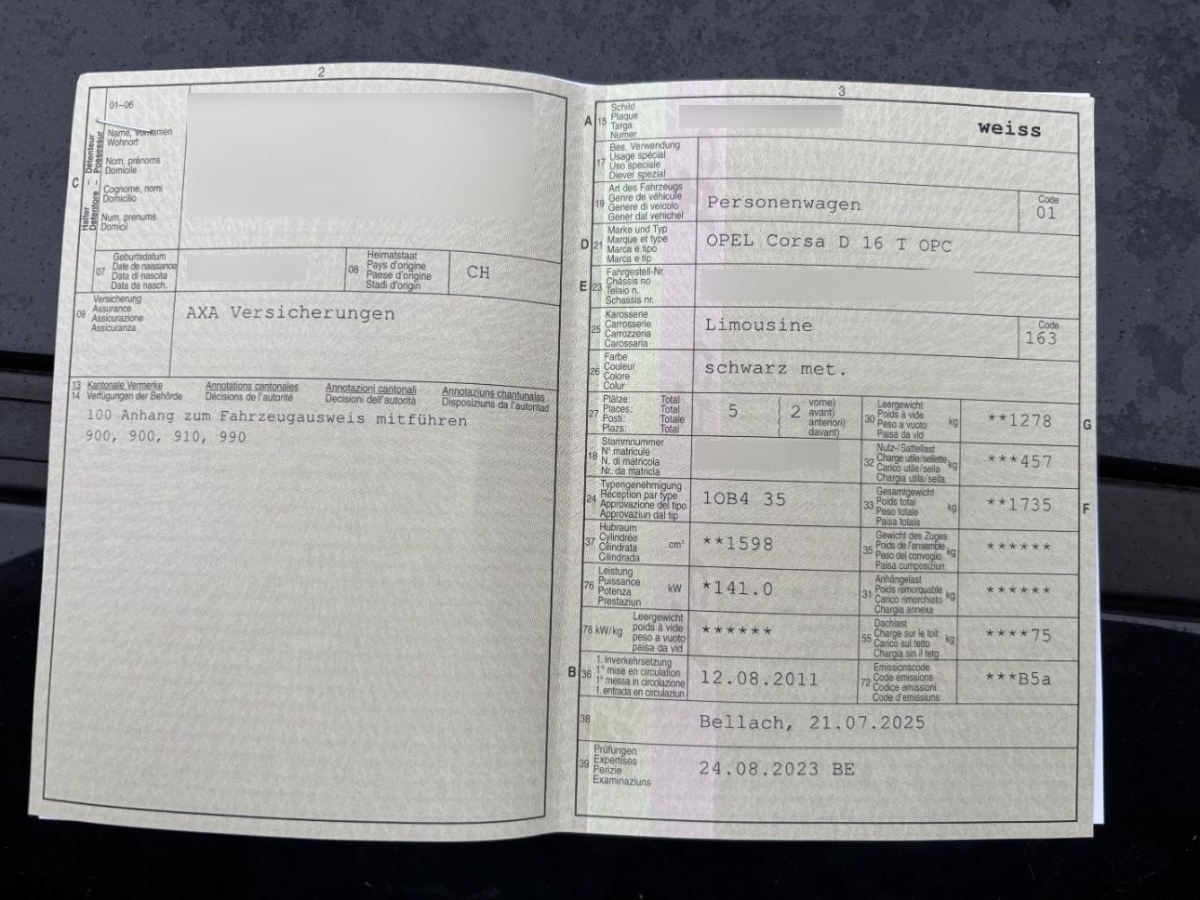 2
01-06
C
Halter - Détenteur
Detentore - Possessur
Name, Vornamen
Wohnort
Nom, prénoms
Domicile
Cognome, nomi
Domicilio
Num, prenums
Domicil
07
Geburtsdatum
Date de naissance
Data di nascita
Data da nasch.
08
Heimatstaat
Pays d'origine
Paese d'origine
Stadi d'origin
CH
09
Versicherung
Assurance
Assicurazione
Assicuranza
AXA Versicherungen
13 Kantonale Vermerke Annotations cantonales Annotazioni cantonali Annotaziuns chantunalas
14 Verfügungen der Behörde Décisions de l'autorité Decisioni dell'autorità Disposiziuns da l'autoritad
100 Anhang zum Fahrzeugausweis mitführen
900, 900, 910, 990
3
A 15
Schild
Plaque
Targa
Numer
weiss
17
Bes. Verwendung
Usage spécial
Uso speciale
Diever spezial
19
Art des Fahrzeugs
Genre de véhicule
Genere di veicolo
Gener dal vehichel
Personenwagen
Code
01
D 21
Marke und Typ
Marque et type
Marca e tipo
Marca e tip
OPEL Corsa D 16 T OPC
E 23
Fahrgestell-Nr.
Châssis no
Telaio n.
Schassis nr.
25
Karosserie
Carrosserie
Carrozzeria
Carossaria
Limousine
Code
163
26
Farbe
Couleur
Colore
Colur
schwarz met.
27
Plätze: Total
Places: Total
Posti: Totale
Plazs: Total
5
2
vorne)
avant)
anteriori)
davant)
30
Leergewicht
Poids à vide
Peso a vuoto
Paisa da vid
kg
**1278
G
18
Stammnummer
N° matricule
N. di matricola
Nr. da matricla
32
Nutz-/Sattellast
Charge utile/sellette
Carico utile/sella
Chargia utila/sella
kg
***457
24
Typengenehmigung
Réception par type
Approvazione del tipo
Approvaziun dal tip
1OB4 35
33
Gesamtgewicht
Poids total
Peso totale
Paisa totala
kg
**1735
F
37
Hubraum
Cylindrée
Cilindrata
Cilindrada
cm³
**1598
35
Gewicht des Zuges
Poids de l'ensemble
Peso del convoglio
Paisa cumposiziun
kg
******
76
Leistung
Puissance
Potenza
Prestaziun
kW
*141.0
31
Anhängelast
Poids remorquable
Carico rimorchiato
Chargia annexa
kg
******
78 kW/kg
Leergewicht
poids à vide
peso a vuoto
paisa da vid
******
55
Dachlast
Charge sur le toit
Carico sul tetto
Chargia sin il tetg
kg
****75
B 36
1. Inverkehrsetzung
1re mise en circulation
1a messa in circolazione
1. entrada en circulaziun
12.08.2011
72
Emissionscode
Code émissions
Codice emissioni
Code d'emissiuns
***B5a
38
Bellach, 21.07.2025
39
Prüfungen
Expertises
Perizie
Examinaziuns
24.08.2023 BE